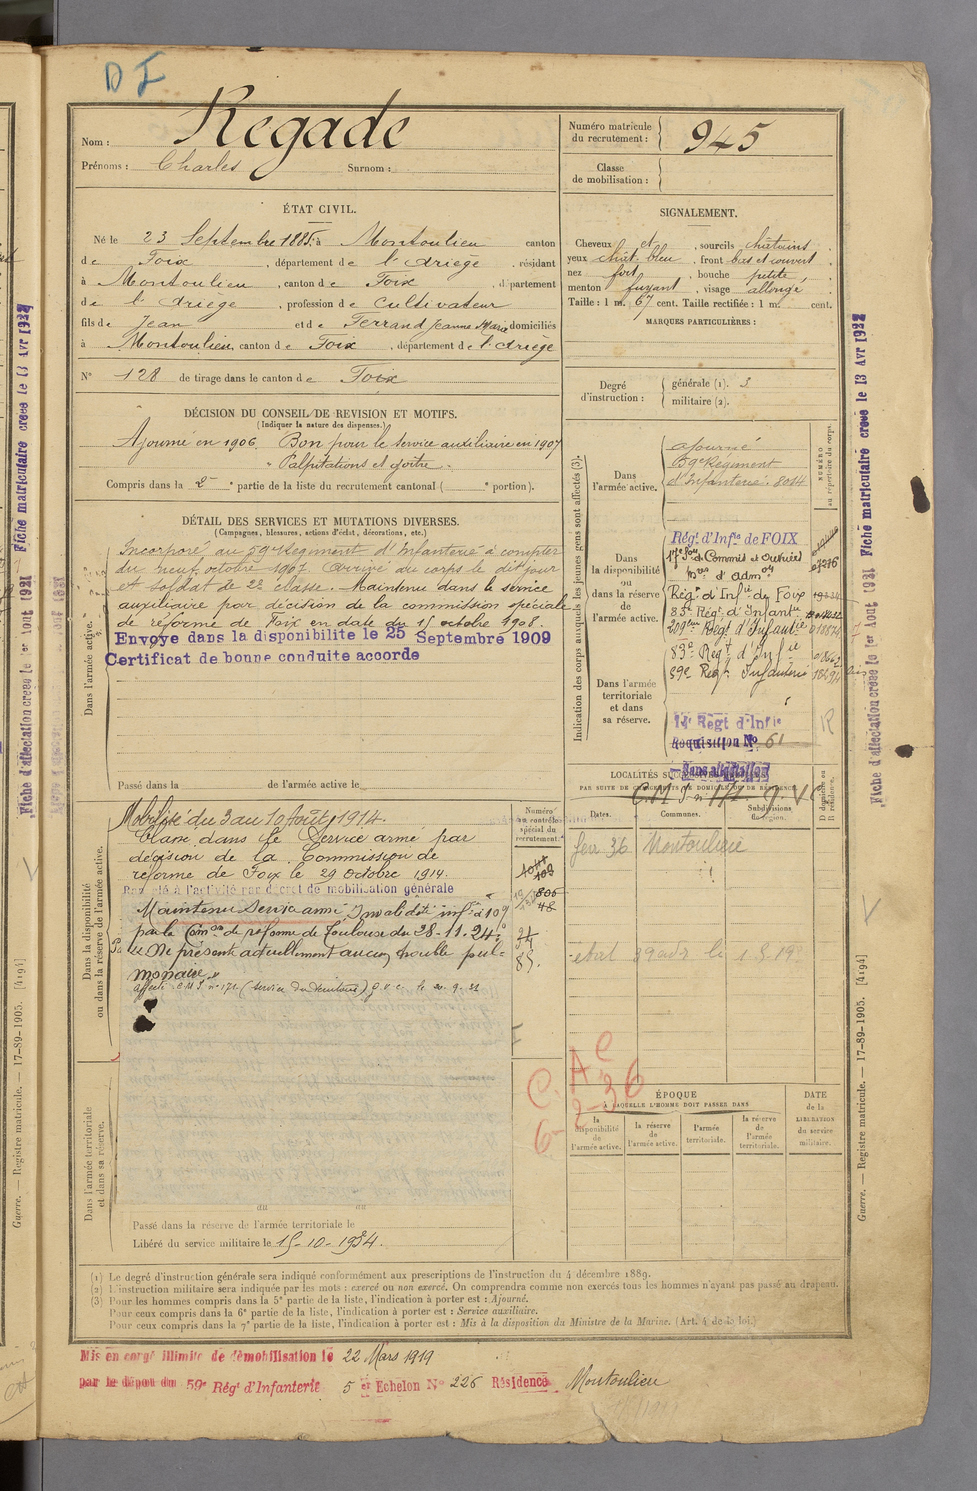 D I
Nom : Regade
Prénoms : Charles Surnom :
Numéro matricule
du recrutement : 945
Classe
de mobilisation :
ÉTAT CIVIL.
Né le 23 Septembre 1885 à Montoulieu canton
de Foix, département de l'Ariège, résidant
à Montoulieu, canton de Foix, département
de l'Ariège, profession de Cultivateur
fils de Jean et de Ferrand Jeanne Marie domiciliés
à Montoulieu, canton de Foix, département de l'Ariège
N° 128 de tirage dans le canton de Foix
SIGNALEMENT.
Cheveux et, sourcils châtains
yeux chât. bleu, front bas et couvert,
nez fort, bouche petite,
menton fuyant, visage allongé
Taille : 1 m. 67 cent. Taille rectifiée : 1 m. cent.
MARQUES PARTICULIÈRES :
Degré
d'instruction :
générale (1). 3
militaire (2).
DÉCISION DU CONSEIL DE REVISION ET MOTIFS.
(Indiquer la nature des dispenses.)
Ajourné en 1906 Bon pour le service auxiliaire en 1907
" Palpitations et goitre "
Compris dans la 2e partie de la liste du recrutement cantonal ( e portion).
DÉTAIL DES SERVICES ET MUTATIONS DIVERSES.
(Campagnes, blessures, actions d'éclat, décorations, etc.)
Dans l'armée active.
Incorporé au 59e Régiment d'Infanterie à compter
du neuf octobre 1907 Arrivé au corps le dit jour
et soldat de 2e classe. Maintenu dans le service
auxiliaire par décision de la commission spéciale
de réforme de Foix en date du 15 octobre 1908.
Envoye dans la disponibilite le 25 Septembre 1909
Certificat de bonne conduite accorde
Passé dans la de l'armée active le
Indication des corps auxquels les jeunes gens sont affectés (3).
NUMÉRO
au répertoire du corps.
Dans
l'armée active.
ajourné
59e Régiment
d'Infanterie. 8014
Dans
la disponibilité
ou
dans la réserve
de
l'armée active.
Régt d'Infie de FOIX
17e Son de Commis et Ouvriers
Mres d'Admon
Régt d'Infie de Foix
83e Régt d'Infantie
209eme Régt d'Infantie
83e Régt d'Infie
59e Régt Infanterie
Dans l'armée
territoriale
et dans
sa réserve.
14e Régt d'Infie
Réquisition N° 61
Sans affectation
LOCALITÉS SUCCESSIVES HABITÉES
PAR SUITE DE CHANGEMENTS DE DOMICILE OU DE RÉSIDENCE.
Dates.
Communes.
Subdivisions
de région.
D domicile ou
R résidence.
fev 36 Montoulieu
R
Dans la disponibilité
ou dans la réserve de l'armée active.
Numéro
au contrôle
spécial du
recrutement.
Mobilisé du 3 au 10 Août 1914.
Classé dans le Service armé par
décision de la Commission de
réforme de Foix le 29 Octobre 1914.
Rappelé à l'activité par décret de mobilisation générale
Maintenu Service armé Invalidité infre à 10%
par la Comon de réforme de Toulouse du 28-11-24
Ne présente actuellement aucun trouble pul-
monaire"
C. A C
6-2-36
Dans l'armée territoriale
et dans sa réserve.
Passé dans la réserve de l'armée territoriale le
Libéré du service militaire le 15-10-1934.
ÉPOQUE
À LAQUELLE L'HOMME DOIT PASSER DANS
la
disponibilité
de
l'armée active.
la réserve
de
l'armée active.
l'armée
territoriale.
la réserve
de
l'armée
territoriale.
DATE
de la
LIBÉRATION
du service
militaire.
(1) Le degré d'instruction générale sera indiqué conformément aux prescriptions de l'instruction du 4 décembre 1889.
(2) L'instruction militaire sera indiquée par les mots : exercé ou non exercé. On comprendra comme non exercés tous les hommes n'ayant pas passé au drapeau.
(3) Pour les hommes compris dans la 5e partie de la liste, l'indication à porter est : Ajourné.
Pour ceux compris dans la 6e partie de la liste, l'indication à porter est : Service auxiliaire.
Pour ceux compris dans la 7e partie de la liste, l'indication à porter est : Mis à la disposition du Ministre de la Marine. (Art. 4 de la loi.)
Mis en congé illimité de démobilisation le 22 Mars 1919
par le dépôt du 59e Régt d'Infanterie 5 er Echelon N° 226 Résidence Montoulieu
Fiche d'affectation créée le 1er Aout 1921 Fiche matriculaire créée le 13 Avr 1922
Guerre. — Registre matricule. — 17-89-1905. [4194]
Fiche d'affectation créée le 1er Aout 1921 Fiche matriculaire créée le 13 Avr 1922
Guerre. — Registre matricule. — 17-89-1905. [4194]